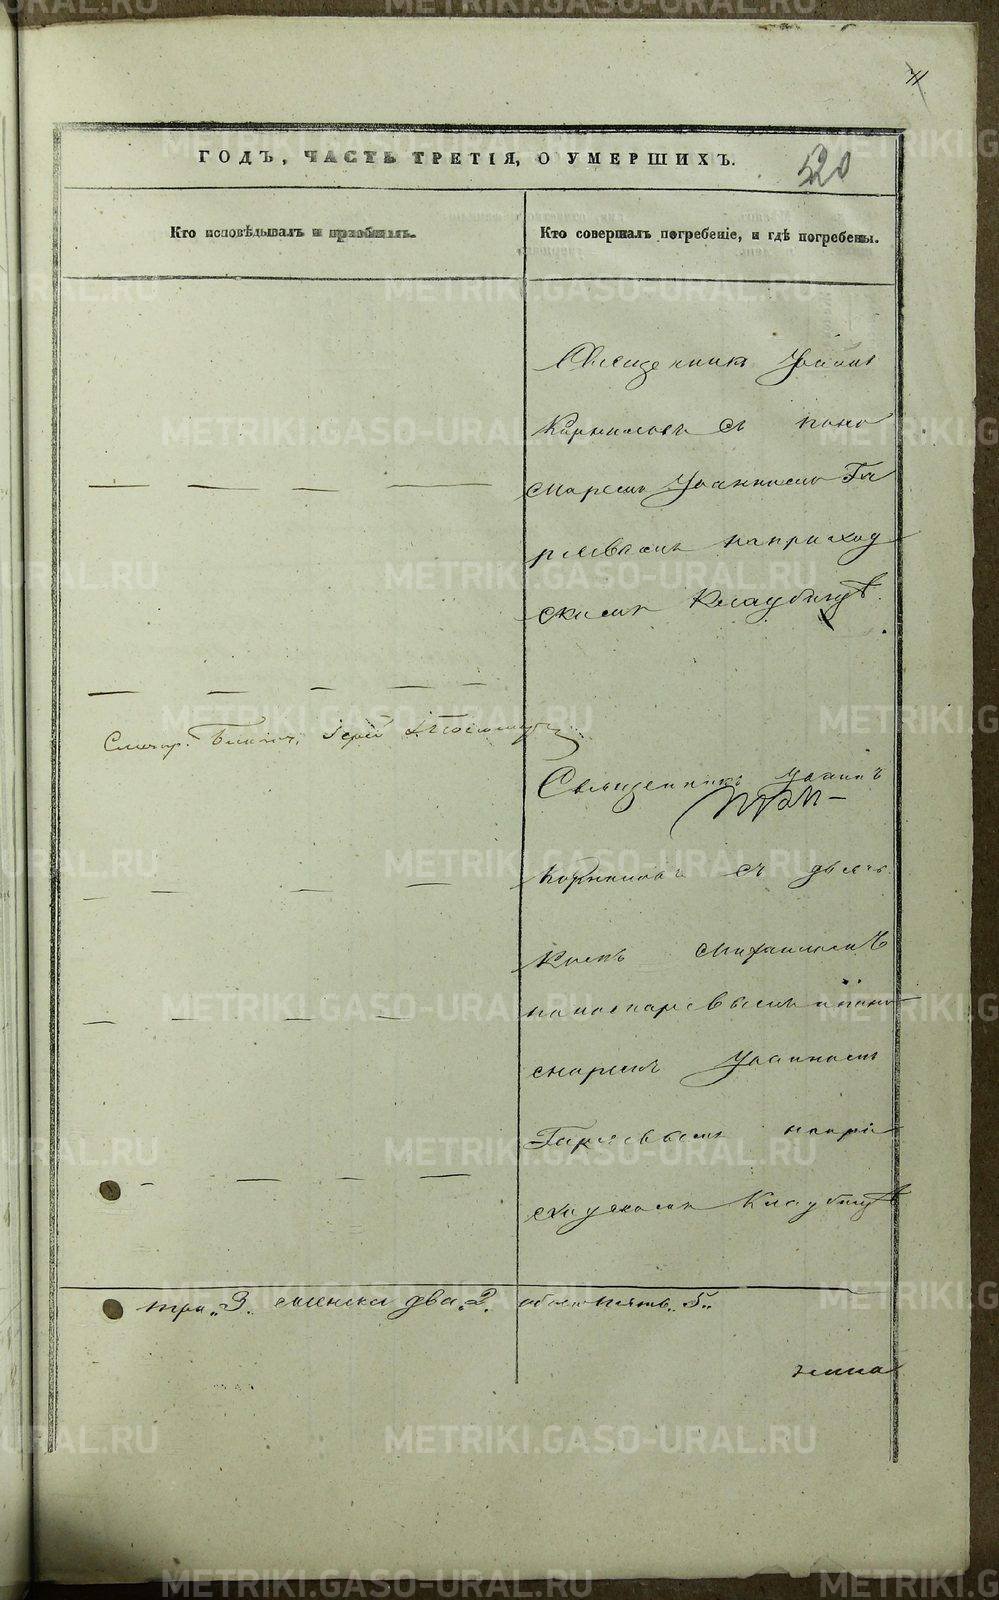 71
ГОДЪ, ЧАСТЬ ТРЕТІЯ, О УМЕРШИХЪ.
520
Кто исповѣдывалъ и пріобщалъ.
Кто совершалъ погребеніе, и гдѣ погребены.
Священникъ Іоаннъ
Корниловъ съ поно
маремъ Іоанномъ Га
ряевымъ на приход
скомъ кладбищѣ
Іерей
Священникъ Іоаннъ
Корниловъ съ дьяч
комъ Михаиломъ
Пономаревымъ и поно
маремъ Іоанномъ
Гаряевымъ на при
ходскомъ кладбищѣ
три „3. женска два „2. обоего пять „5„
METRIKI.GASO-URAL.RU